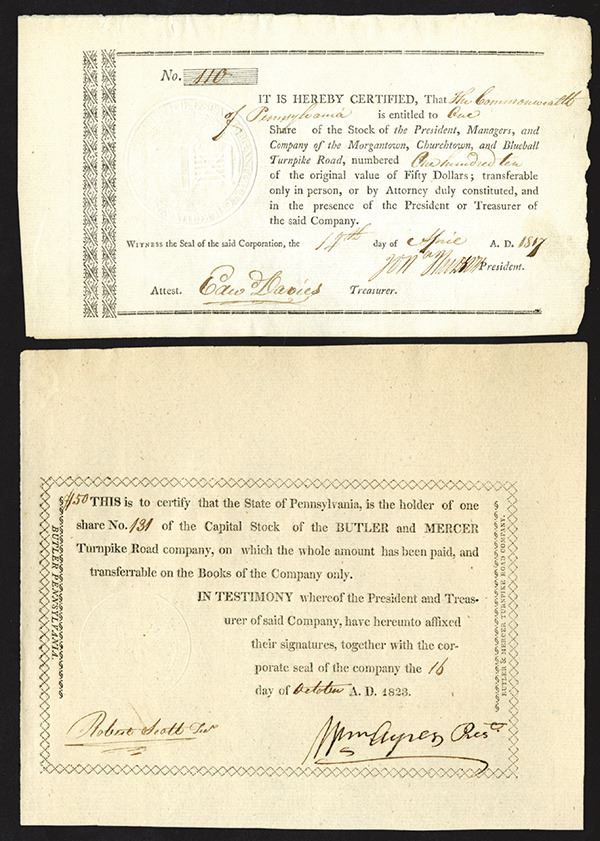 No. 110
IT IS HEREBY CERTIFIED, That The Commonwealth
of Pennsylvania is entitled to One
Share of the Stock of the President, Managers, and
Company of the Morgantown, Churchtown, and Blueball
Turnpike Road, numbered One hundred ten
of the original value of Fifty Dollars; transferable
only in person, or by Attorney duly constituted, and
in the presence of the President or Treasurer of
the said Company.
WITNESS the Seal of the said Corporation, the 19th day of April A. D. 1817
President.
Attest. Edw Davies Treasurer.
$50 THIS is to certify that the State of Pennsylvania, is the holder of one
share No. 131 of the Capital Stock of the BUTLER and MERCER
Turnpike Road company, on which the whole amount has been paid, and
transferrable on the Books of the Company only.
IN TESTIMONY whereof the President and Treas-
urer of said Company, have hereunto affixed
their signatures, together with the cor-
porate seal of the company the 16
day of October A. D. 1823.
Robert Scott Tr
Wm Ayres Pres
BUTLER PENNSYLVANIA.
BUTLER & MERCER TURNPIKE ROAD COMPANY.